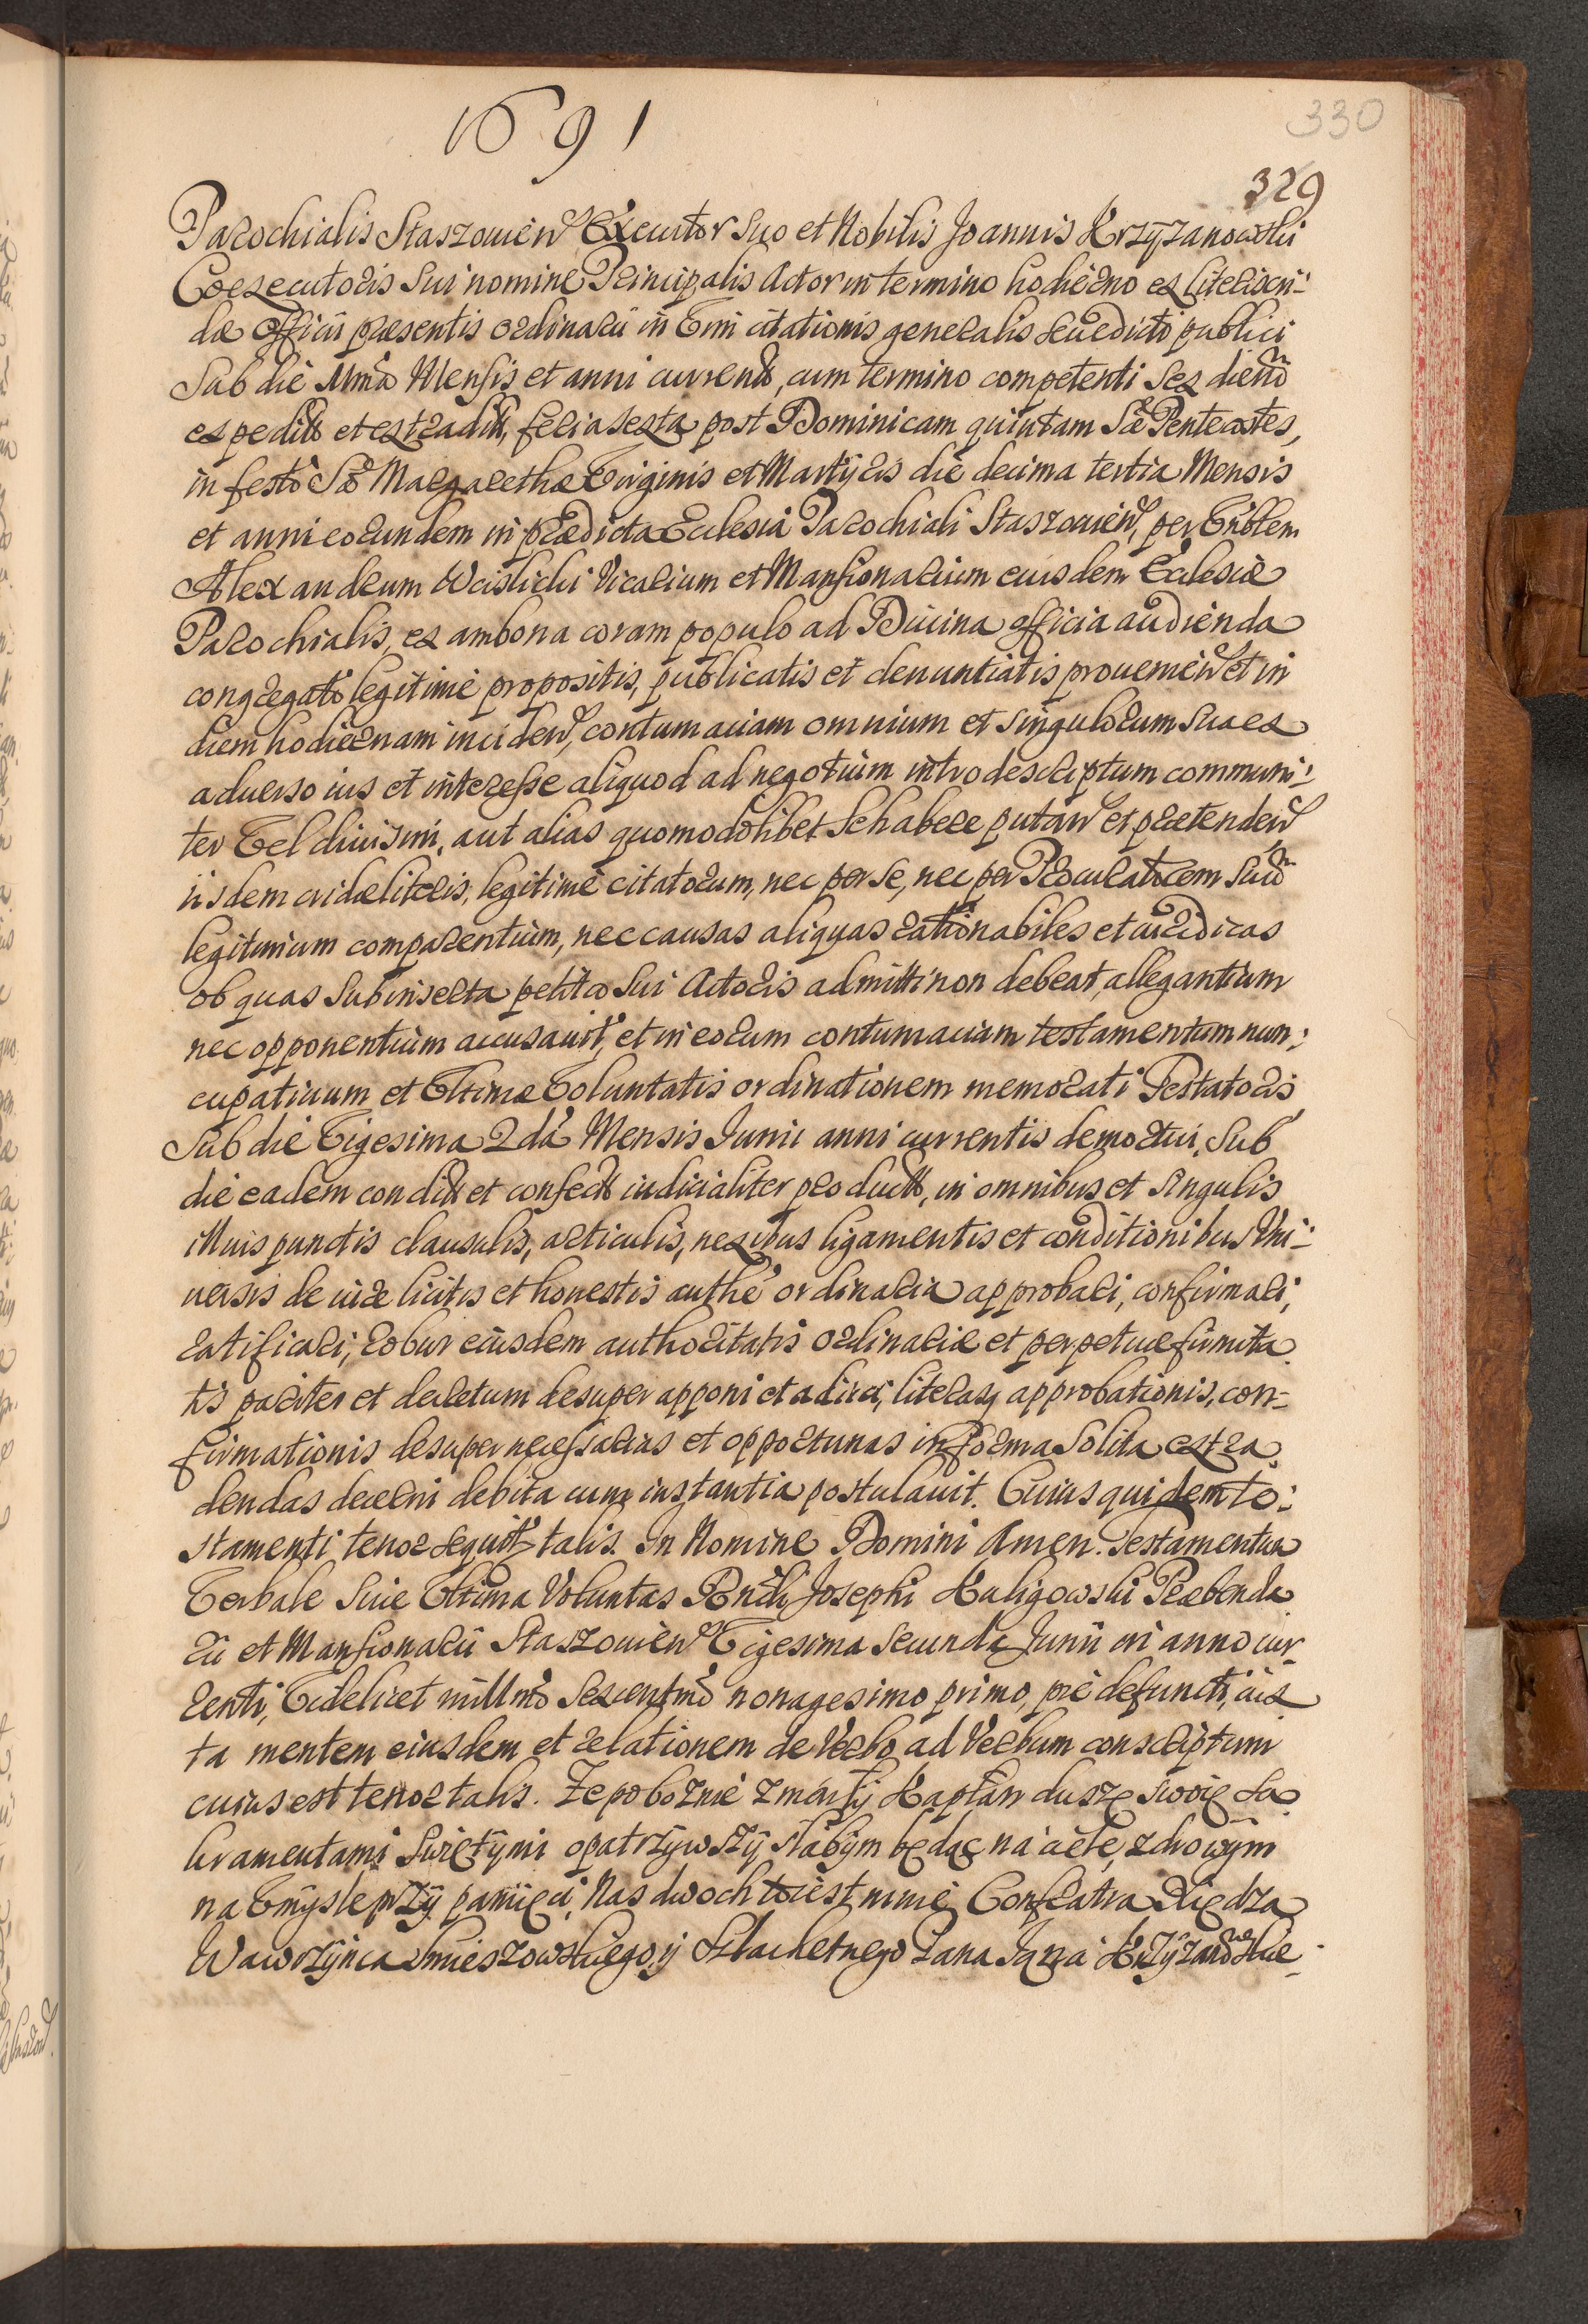 1691
330
329
Parochialis Staszouien Executor suo et Nobilis Joannis Krzyżanowski
Coexecutoris sui nomine Principalis Actor in termino hodierno ex literis cri-
dæ officii præsentis ordinarii in vim citationis generalis seu edicti publici
sub die Mensis et anni currend, cum termino competenti sex dierum
expeditis et extraditis, feria sexta post Dominicam quintam Sæ Pentecostes,
in festo Sæ Margarethæ Virginis et Martyris die decima tertia Mensis
et anni eorundem in prædicta Ecclesia Parochiali Staszouien, per Vnblem
Alexandrum Wcislicki Vicarium et Mansionarium eiusdem Ecclesiæ
Parochialis, ex ambona coram populo ad Diuina officia audienda
congregato legitime propositis, publicatis et denuntiatis prouenien et in
diem hodiernam inciden, contumaciam omnium et singulorum sua ex
aduerso ius et interesse aliquod ad negotium introdescriptum communi-
ter vel diuisim, aut alias quomodolibet se habere putan et prætenden
iisdem cridæ literis, legitime citatorum, nec per se, nec per Procuratorem suum
legitimum comparentium, nec causas aliquas rationabiles et iuridicas
ob quas subinserta petita sui Actoris admitti non debeat, allegantium
nec opponentium accusauit, et in eorum contumaciam testamentum nun-
cupatiuum et Vltimæ Voluntatis ordinationem memorati Testatoris
sub die Vigesima 2da Mensis Junii anni currentis demortui, sub
die eadem condit et confect iudicialiter product, in omnibus et singulis
illius punctis clausulis, articulis, nexibus ligamentis et conditionibus Vni-
uersis de iure licitis et honestis authe ordinaria approbari, confirmari,
ratificari, robur eiusdem authoritatis ordinariæ et perpetuæ firmita
tis pariter et decretum desuper apponi et adiici, literasq approbationis, con-
firmationis desuper necessarias et oportunas in forma solita extra
dendas decerni debita cum instantia postulauit. Cuius quidem te-
stamenti tenor sequitr talis. In Nomine Domini Amen. Testamentum
Verbale siue Vltima Voluntas Rndi Josephi Kuligowski Præbenda
rii et Mansionarii Staszouien Vigesima secunda Junii in anno cur
renti, Videlicet millmo sexcentmo nonagesimo primo, pie defuncti, iux
ta mentem eiusdem et relationem de Verbo ad Verbum conscriptum
cuius est tenor talis. Ze pobożnie zmárły Kapłan duszę swoię Sa
kramentami Swiętymi opatrzywszy słabym będąc ná ciele, zdrowym
na Vmyśle przy pamięci, Nas dwoch to iest mnie Confratra Xiędza
Wawrzyńca Smieszowskiego, y Szlachetnego Pana Jana Krzyżanowskie-